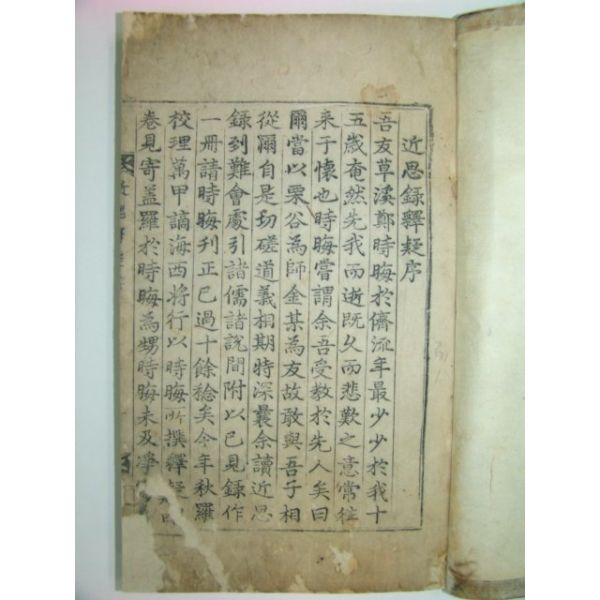 近思録釋疑序
吾友草溪鄭時晦於儕流年最少少於我十
五歲奄然先我而逝既久而悲歎之意常往
来于懷也時晦嘗謂余吾受教於先人矣曰
爾當以栗谷為師金某為友故敢與吾子相
從爾自是切磋道義相期特深曩余讀近思
録到難會處引諸儒諸說間附以己見録作
一冊請時晦刊正已過十餘稔矣今年秋羅
校理萬甲謫海西將行以時晦所撰釋疑
卷見寄盖羅於時晦為甥時晦未及淨